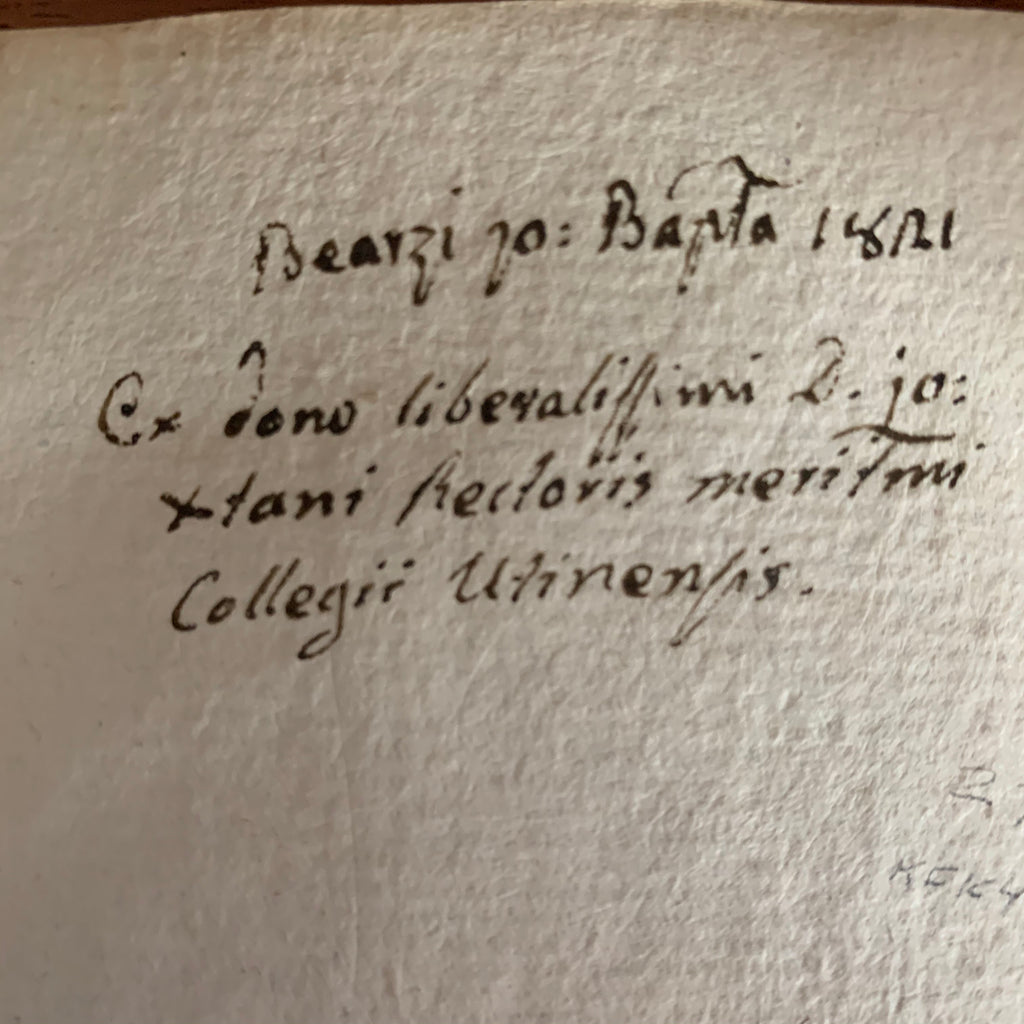 Bearzi Jo: Bapta 1821
Ex dono liberalissimi D. Jo:
xtani Rectoris meritmi
Collegii Utinensis.